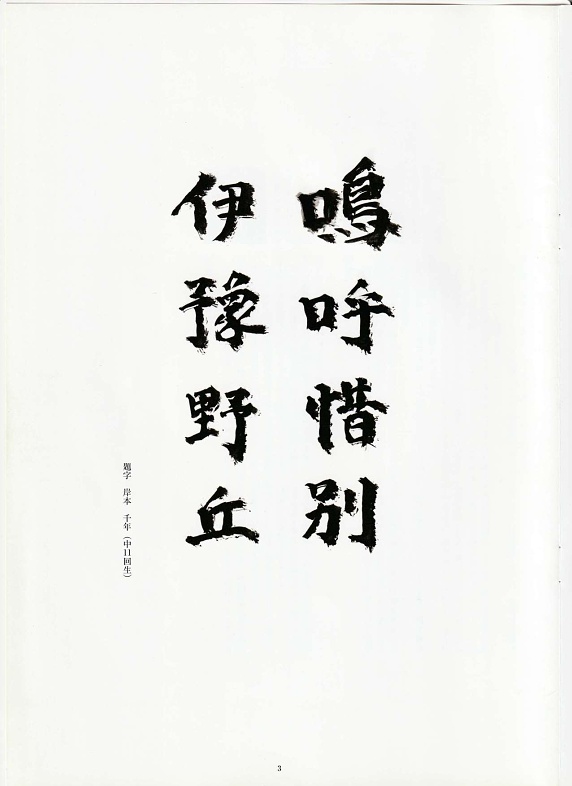 嗚呼惜別
伊豫野丘
題字 岸本 千年（中11回生）
3